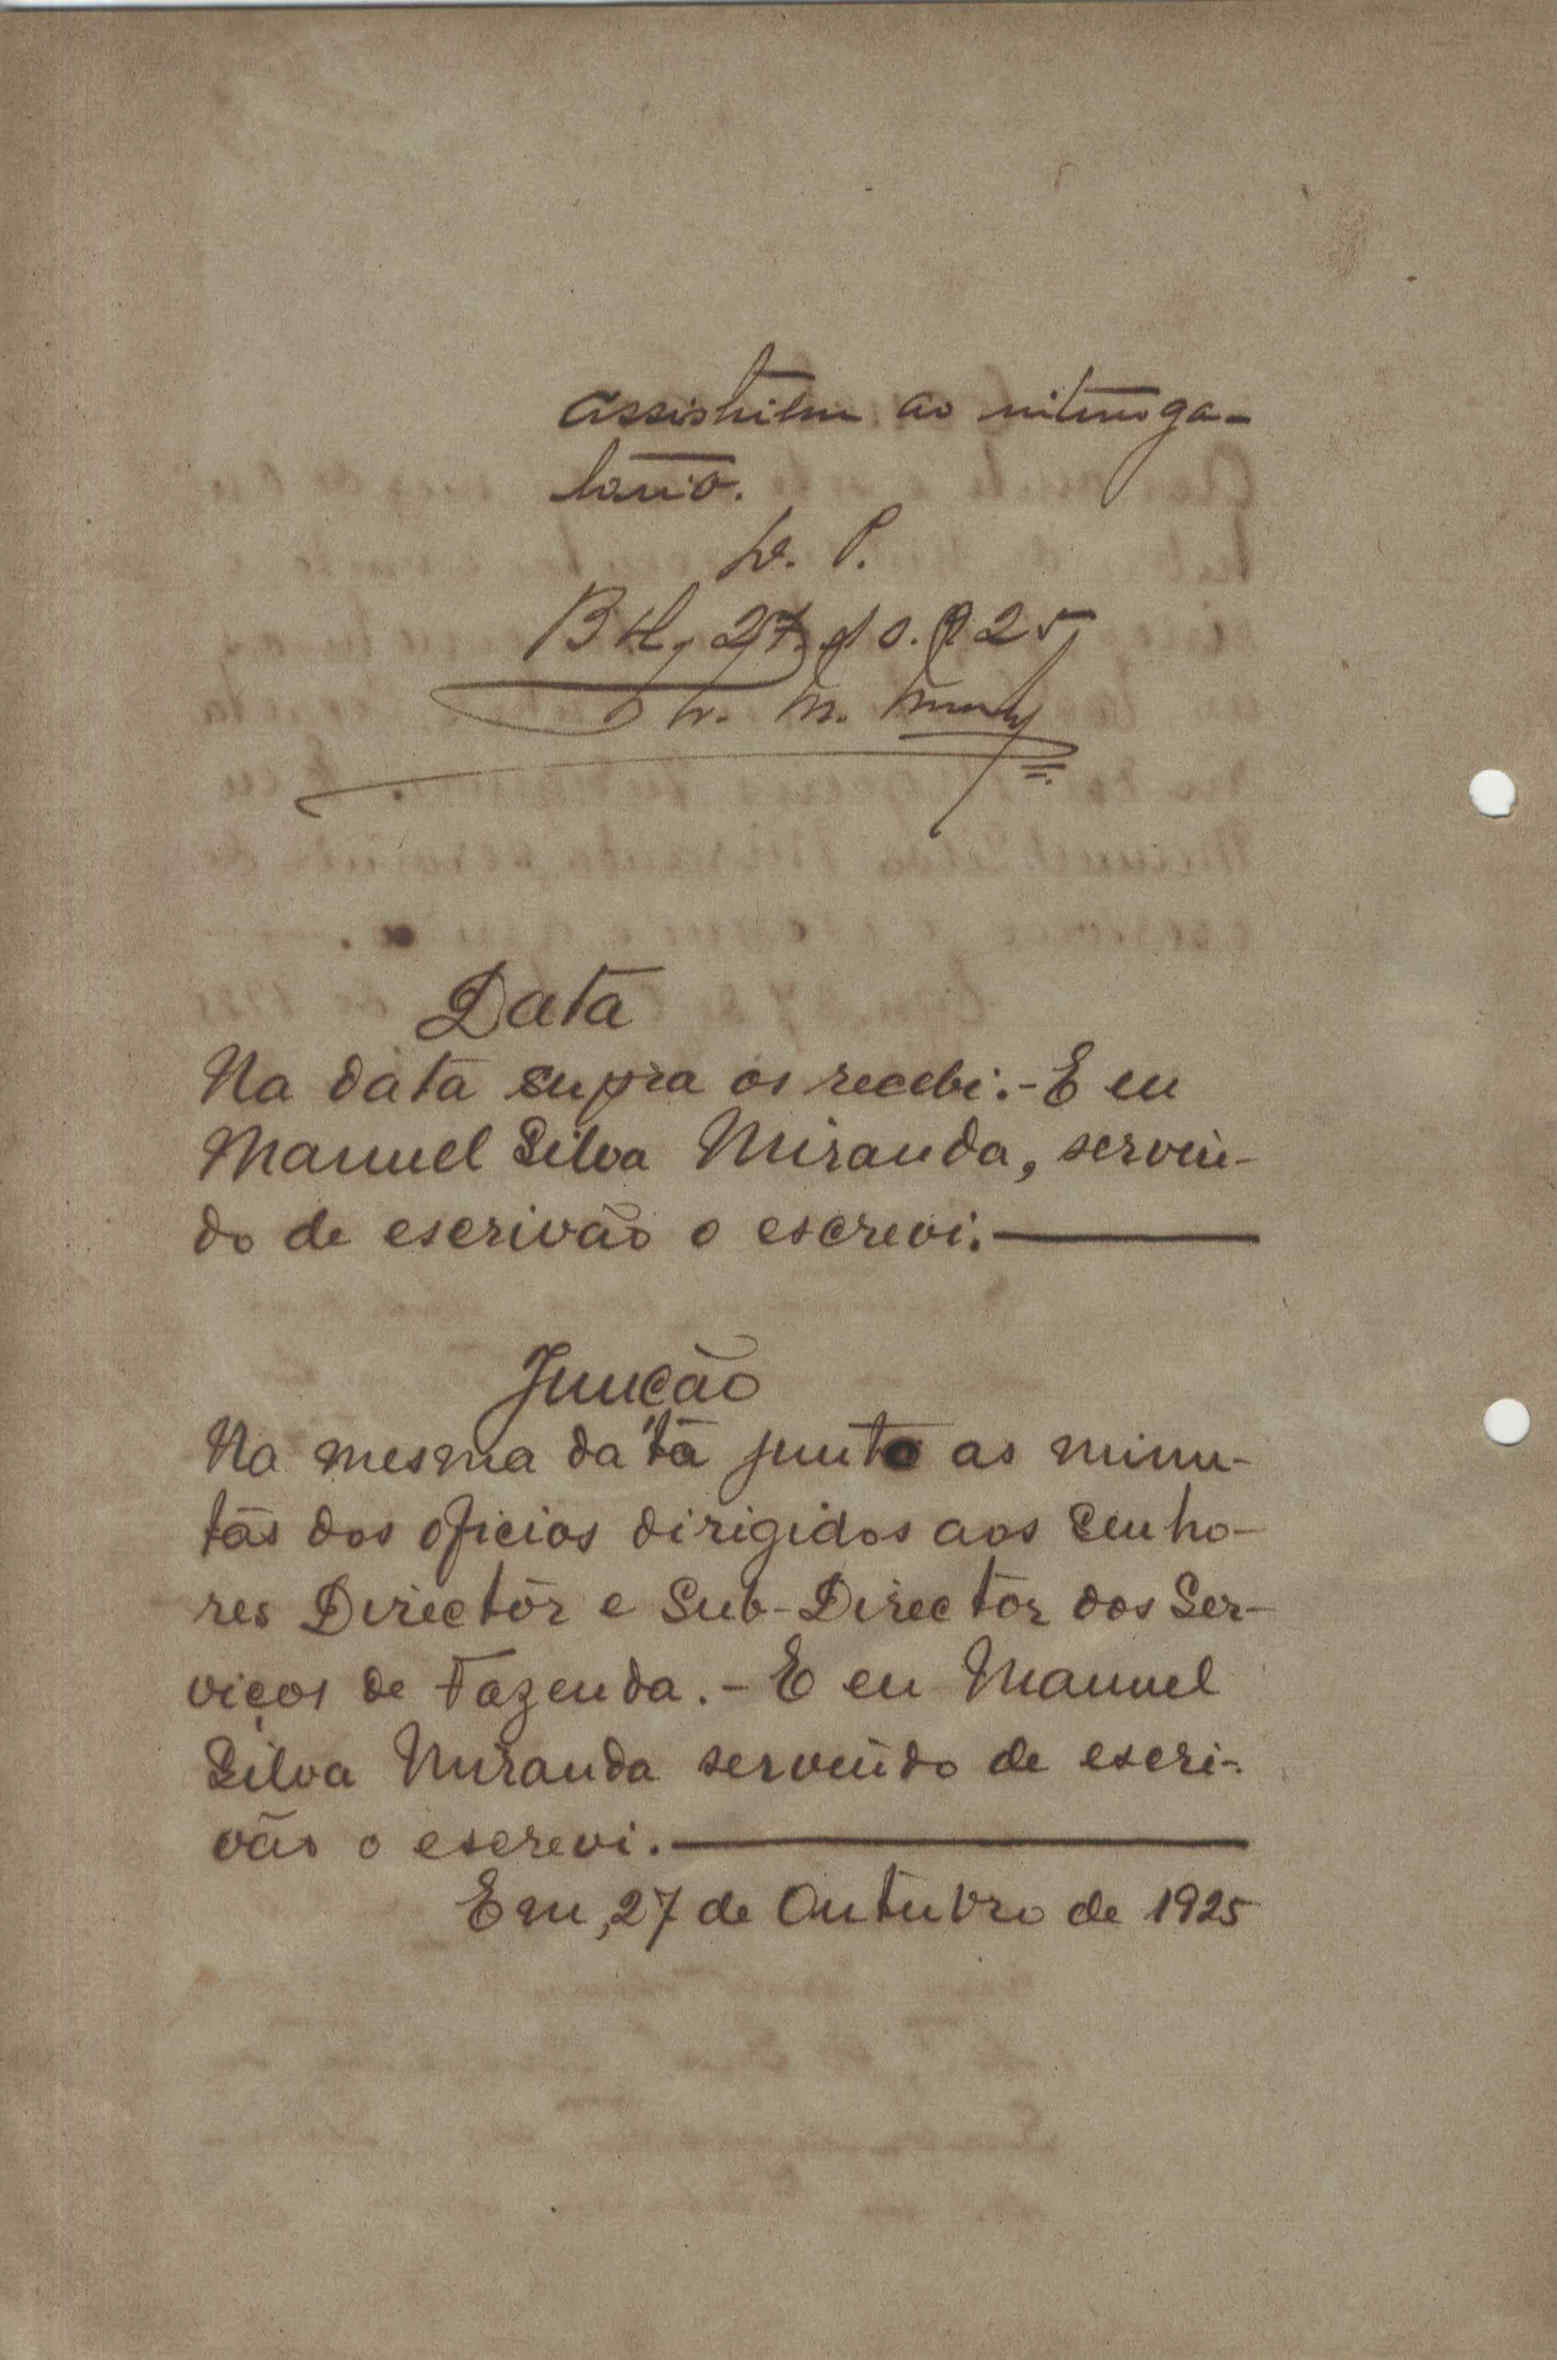 assistirem ao interroga-
tório.
D. P.
BH, 27.10.925,
M.
Data
Na data supra os recebi.- E eu
Manuel Silva Miranda, servin-
do de escrivão o escrevi.
Junção
Na mesma data junto as minu-
tas dos oficios dirigidos aos Senho-
res Director e Sub-Director dos Ser-
viços de Fazenda.- E eu Manuel
Silva Miranda servindo de escri-
vão o escrevi.
Em, 27 de Outubro de 1925